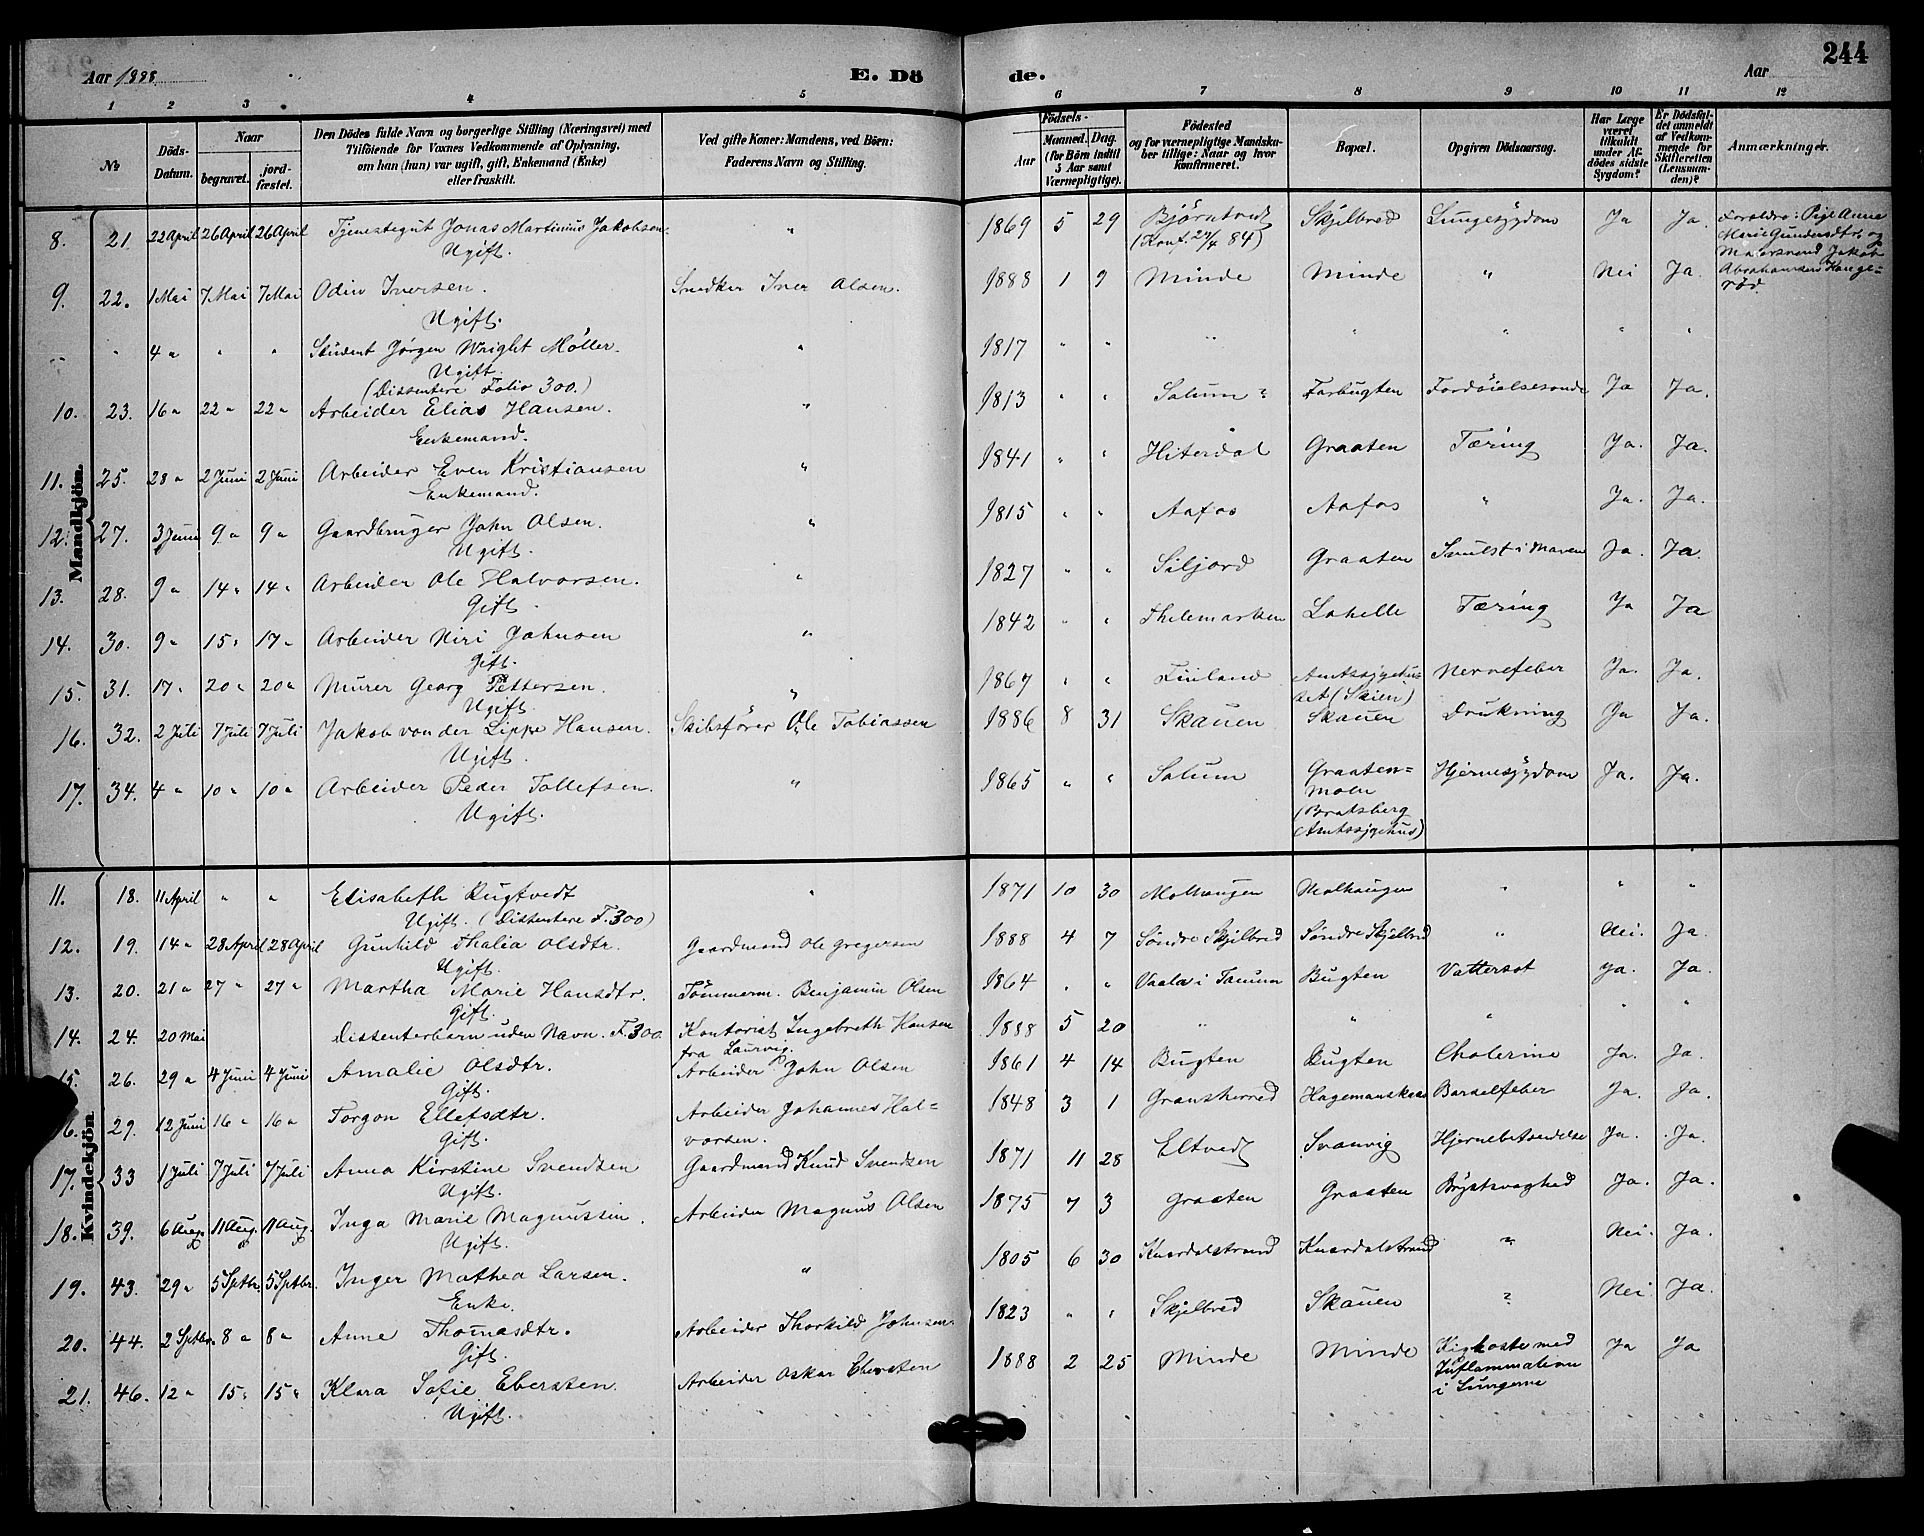 Aar 1888 E. Dö de. Aar 244
1 2 3 4 5 6 7 8 9 10 11 12
№
Döds-Datum.
Naar
begravet.
jordfæstet.
Den Dödes fulde Navn og borgerlige Stilling (Næringsvei) med
Tilföiende for Voxnes Vedkommende af Oplysning,
om han (hun) var ugift, gift, Enkemand (Enke)
eller fraskilt.
Ved gifte Koner: Mandens, ved Börn:
Faderens Navn og Stilling.
Födsels-
Aar
Maaned. Dag.
(for Börn indtil
5 Aar samt
Værnepligtige).
Födested
og for værnepligtige Mandskaber tillige: Naar og hvor
konfirmeret.
Bopæl.
Opgiven Dödsaarsag.
Har Læge
været
tilkaldt
under Afdödes sidste
Sygdom?
Er Dödsfaldet anmeldt
af Vedkommende for
Skifteretten
(Lensmanden)?
Anmærkninger.
Mandkjön.
8. 21. 22 April 26 April 26 April Tjenestegut Jonas Martinius Jakobsen. " 1869 5 29 Bjørntvedt Skjelbred Lungesygdom Ja Ja. Forældre: Pige Anne
Ugift. (Konf. 27/4 84) Marie Gundersdtr. og
Matrosmand Jakob
9. 22. 1 Mai 7 Mai 7 Mai Odin Iversen. Snedker Iver Olsen. 1888 1 9 Minde Minde " Nei Ja. Abrahamsen Hauge=
Ugift. rød.
" " 4 " " " Student Jørgen Wright Møller. " 1817 " " " " " " "
Ugift.
(Dissentere Folio 300.)
10. 23. 16 " 22 " 22 " Arbeider Elias Hansen. " 1813 " " Solum " Forbugten Fordöielsesonde Ja Ja.
Enkemand.
11. 25. 28 " 2 Juni 2 Juni Arbeider Even Kristiansen " 1841 " " Hiterdal Graaten Tæring Ja. Ja.
Enkemand.
12. 27. 3 Juni 9 " 9 " Gaardbruger John Olsen. " 1815 " " Aafos Aafos " Ja. Ja.
Ugift.
13. 28. 9 " 14 " 14 " Arbeider Ole Halvorsen. " 1827 " " Siljord Graaten Svulst i Maven Ja. Ja
Gift.
14. 30. 9 " 15 " 17 " Arbeider Niri Johnsen " 1842 " " Thelemarken Lahelle Tæring Ja Ja
Gift.
15. 31. 17 " 20 " 20 " Murer Georg Pettersen. " 1867 " " Finland Amtssygehus- Nervefeber Ja. Ja.
Ugift. et (Skien)
16. 32. 2 Juli 7 Juli 7 Juli Jakob von der Lippe Hansen. Skibsfører Ole Tobiassen 1886 8 31 Skauen Skauen Drukning Ja Ja.
Ugift.
17. 34. 4 " 10 " 10 " Arbeider Peder Tollefsen. " 1865 " " Solum Graaten= Hjernesygdom Ja. Ja.
Ugift. moen
(Bratsberg
Amtssygehus)
Kvindekjön
11. 18. 11 April " " Elisabeth Rugtvedt " 1871 10 30 Molhaugen Molhaugen " " "
Ugift. (Dissentere F. 300)
12. 19. 14 " 28 April 28 April Gunhild Thalia Olsdtr. Gaardmand Ole Gregersen 1888 4 7 Søndre Skjelbred Søndre Skjelbred " Nei. Ja.
Ugift.
13. 20. 21 " 27 " 27 " Martha Marie Hansdtr. Tømmerm. Benjamin Olsen 1864 " " Vaale i Tanum Bugten Vattersot Ja. Ja.
Gift.
14. 24. 20 Mai Dissenterbarn uden Navn. F. 300. Kontorist Ingebreth Hansen 1888 5 20 " " " " "
fra Laurvig.
15. 26. 29 " 4 Juni 4 Juni Amalie Olsdtr. Arbeider John Olsen 1861 4 14 Bugten Bugten Cholerine Ja. Ja.
Gift.
16. 29. 12 Juni 16 " 16 " Torgon Ellefsdtr. Arbeider Johannes Hal= 1848 3 1 Gransherred Hagemanskaas Barselfeber Ja. Ja.
Gift. vorsen.
17. 33 1 Juli 7 Juli 7 Juli Anna Kirstine Svendsen Gaardmand Knud Svendsen 1871 11 28 Eltvedt Svanvig Hjernebetændelse Ja. Ja.
Ugift.
18. 39. 6 Aug. 11 Aug. 11 Aug. Inga Marie Magnussen. Arbeider Magnus Olsen 1875 7 3 Graaten Graaten Brystsvaghed Ja. Ja.
Ugift.
19. 43. 29 " 5 Sptbr. 5 Sptbr. Inger Mathea Larsen. " 1805 6 30 Knardalstrand Knardalstrand " Nei. Ja.
Enke.
20. 44. 2 Sptbr. 8 " 8 " Anne Thomasdtr. Arbeider Thorkild Johnsen 1823 " " Skjelbred Skauen ? Nei Ja.
Gift.
21. 46. 12 " 15 " 15 " Klara Sofie Ebersten. Arbeider Oskar Ebersten 1888 2 25 Minde Minde Kighoste med Ja Ja
Ugift. Inflammation
i Lungerne